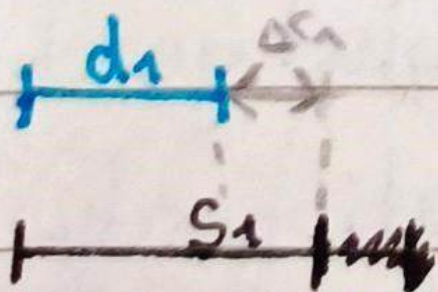 d1 Δs1
S1